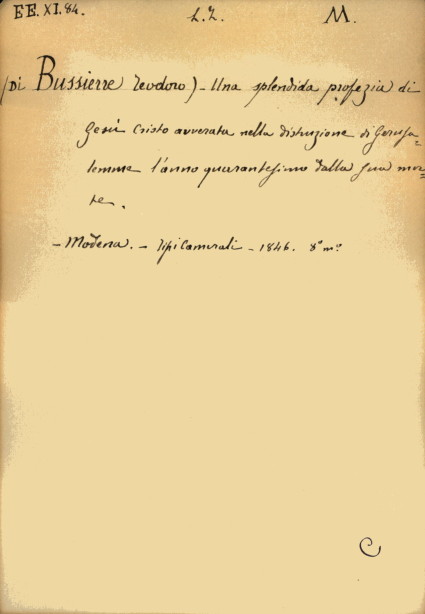 EE. XI. 84. L.L. M.
(Di Bussierre Teodoro) - Una splendida profezia di
Gesù Cristo avverata nella distruzione di Gerusa=
lemme l'anno quarantesimo dalla sua mor=
te.
- Modena. - Tipi Camerali - 1846. 8° m°
C